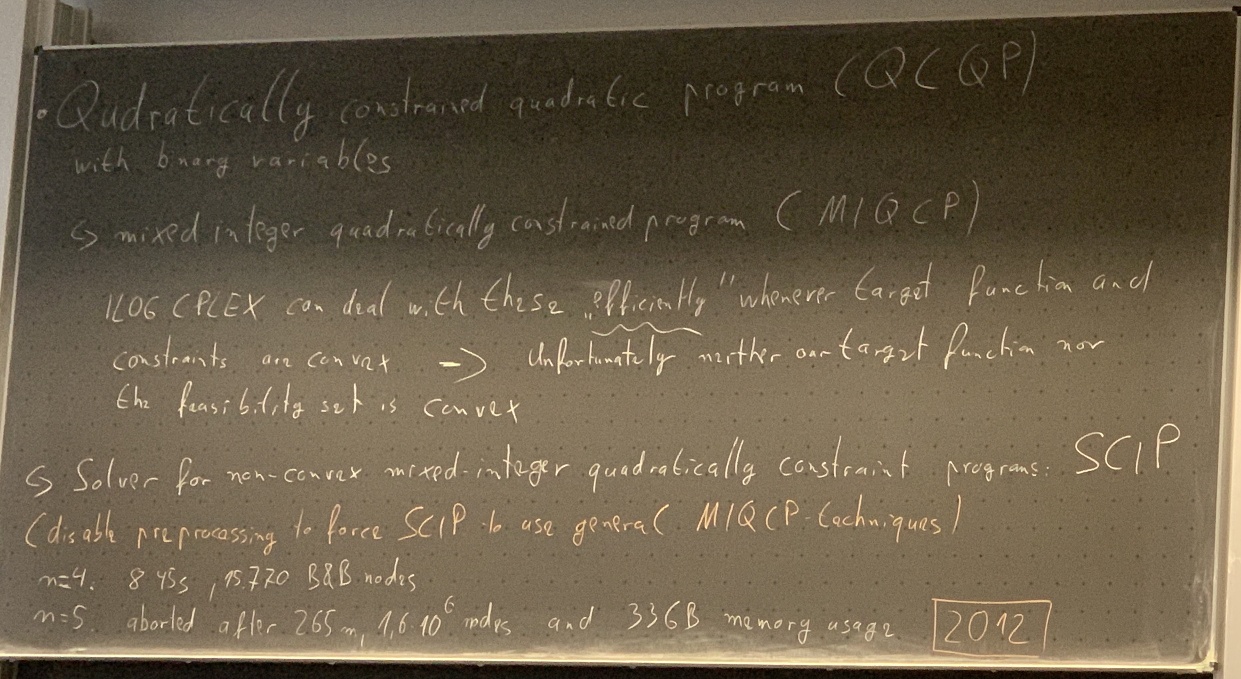 • Qudratically constrained quadratic program (QCQP)
with binary variables
↳ mixed integer quadratically constrained program (MIQCP)
ILOG CPLEX can deal with these „efficiently" whenever target function and
constraints are convex → Unfortunately neither our target function nor
the feasibility set is convex
↳ Solver for non-convex mixed-integer quadratically constraint programs: SCIP
(disable preprocessing to force SCIP to use general MIQCP-techniques)
n=4. 8 45s, 15.770 B&B nodes
n=5. aborted after 265m, 1,6·10⁶ nodes and 33GB memory usage 2012